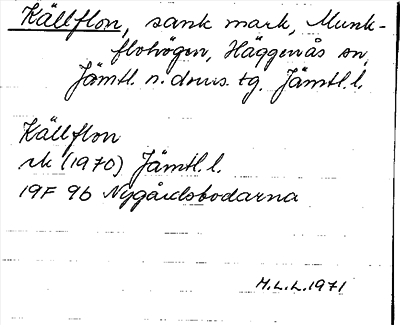 Källflon, sank mark, Munk-
flohögen, Häggenås sn,
Jämtl. n. doms. tg. Jämtl. l.
Källflon
rk (1970) Jämtl. l.
19F 9b Nygårdsbodarna
H.L.L. 1971